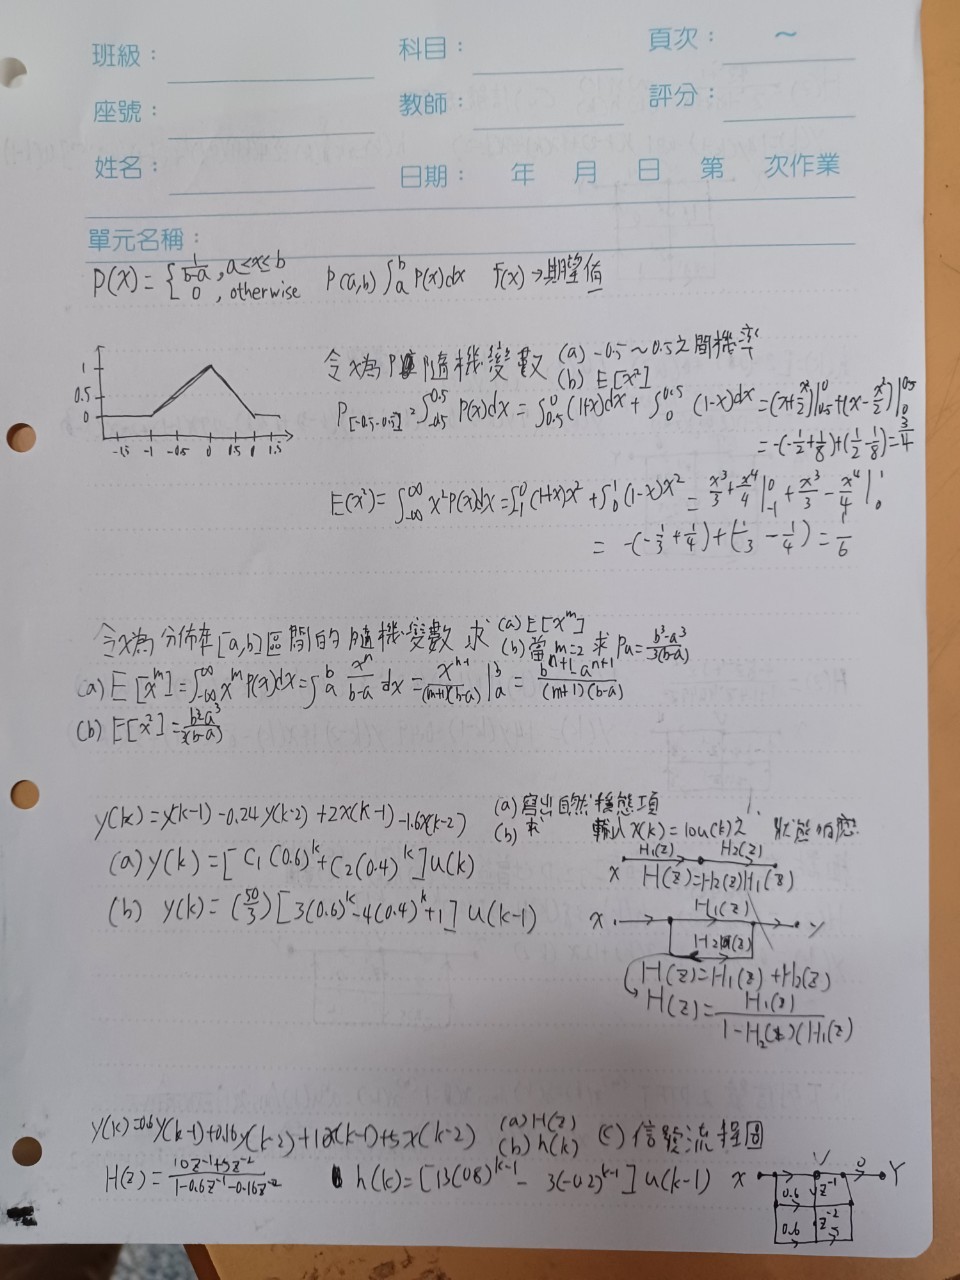 班級： 科目： 頁次： ～
座號： 教師： 評分：
姓名： 日期： 年 月 日 第 次作業
單元名稱：
P(X) = { 1/(b-a) , a≤x≤b P(a,b) ∫_a^b P(x)dx f(x) → 期望值
0 , otherwise
令X為 隨機變數 (a) -0.5 ~ 0.5 之間機率
(b) E[x²]
1
0.5
0
-1.5 -1 -0.5 0 0.5 0 1.5
P[-0.5,-0.5] = ∫_-0.5^0.5 P(x)dx = ∫_0.5^0 (1+x)dx + ∫_0^0.5 (1-x)dx = (x+x²/2)|_0.5^0 + (x-x²/2)|_0^0.5
= -(-1/2+1/8)+(1/2-1/8) = 3/4
E(x²) = ∫_-∞^∞ x²P(x)dx = ∫_1^0 (1+x)x² + ∫_0^1 (1-x)x² = x³/3+x⁴/4|_-1^0 + x³/3 - x⁴/4|_0^1
= -(-1/3+1/4)+(1/3-1/4) = 1/6
令X為分佈在[a,b]區間的隨機變數 求 (a) E[x^m]
(b) 當 m=2 求 Pa = (b³-a³)/(3(b-a))
(a) E[x^m] = ∫_-∞^∞ x^m P(x)dx = ∫_a^b x^n/(b-a) dx = x^(n+1)/((m+1)(b-a)) |_a^b = (b^(n+1)-a^(n+1))/((m+1)(b-a))
(b) E[x²] = (b³-a³)/(3(b-a))
y(k) = y(k-1) -0.24y(k-2) +2x(k-1) -1.6x(k-2) (a) 寫出自然模態項
(b) 求 輸入 x(k) = 10u(k) 之 狀態響應
(a) y(k) = [C₁(0.6)^k + C₂(0.4)^k]u(k)
H₁(z) H₂(z)
x H(z)=H₂(z)H₁(z)
(b) y(k) = (50/3)[3(0.6)^k - 4(0.4)^k + 1] u(k-1)
H₁(z)
x y
H₂(z)
H(z)=H₁(z)+H₂(z)
H(z) = H₁(z)/(1-H₂(z)(H₁(z)
y(k) = 0.6y(k-1)+0.16y(k-2)+10x(k-1)+5x(k-2) (a) H(z)
(b) h(k) (c) 信號流程圖
H(z) = (10z⁻¹+5z⁻²)/(1-0.6z⁻¹-0.16z⁻²) h(k) = [13(0.8)^(k-1) - 3(-0.2)^(k-1)] u(k-1)
x 0 Y
0.6 z⁻¹
0.6 z⁻² 5